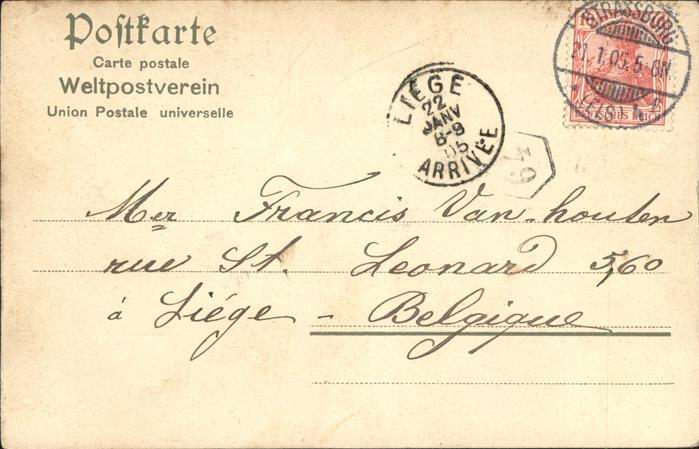 Postkarte
Carte postale
Weltpostverein
Union Postale universelle
STRASSBURG
21.1.05.5-6N.
(ELS.) 1
DEUTSCHES REICH
LIÉGE
22
JANV
8-9
05
ARRIVÉE
49
Mer Francis Van-houten
rue St. Leonard 560
á Liége - Belgique